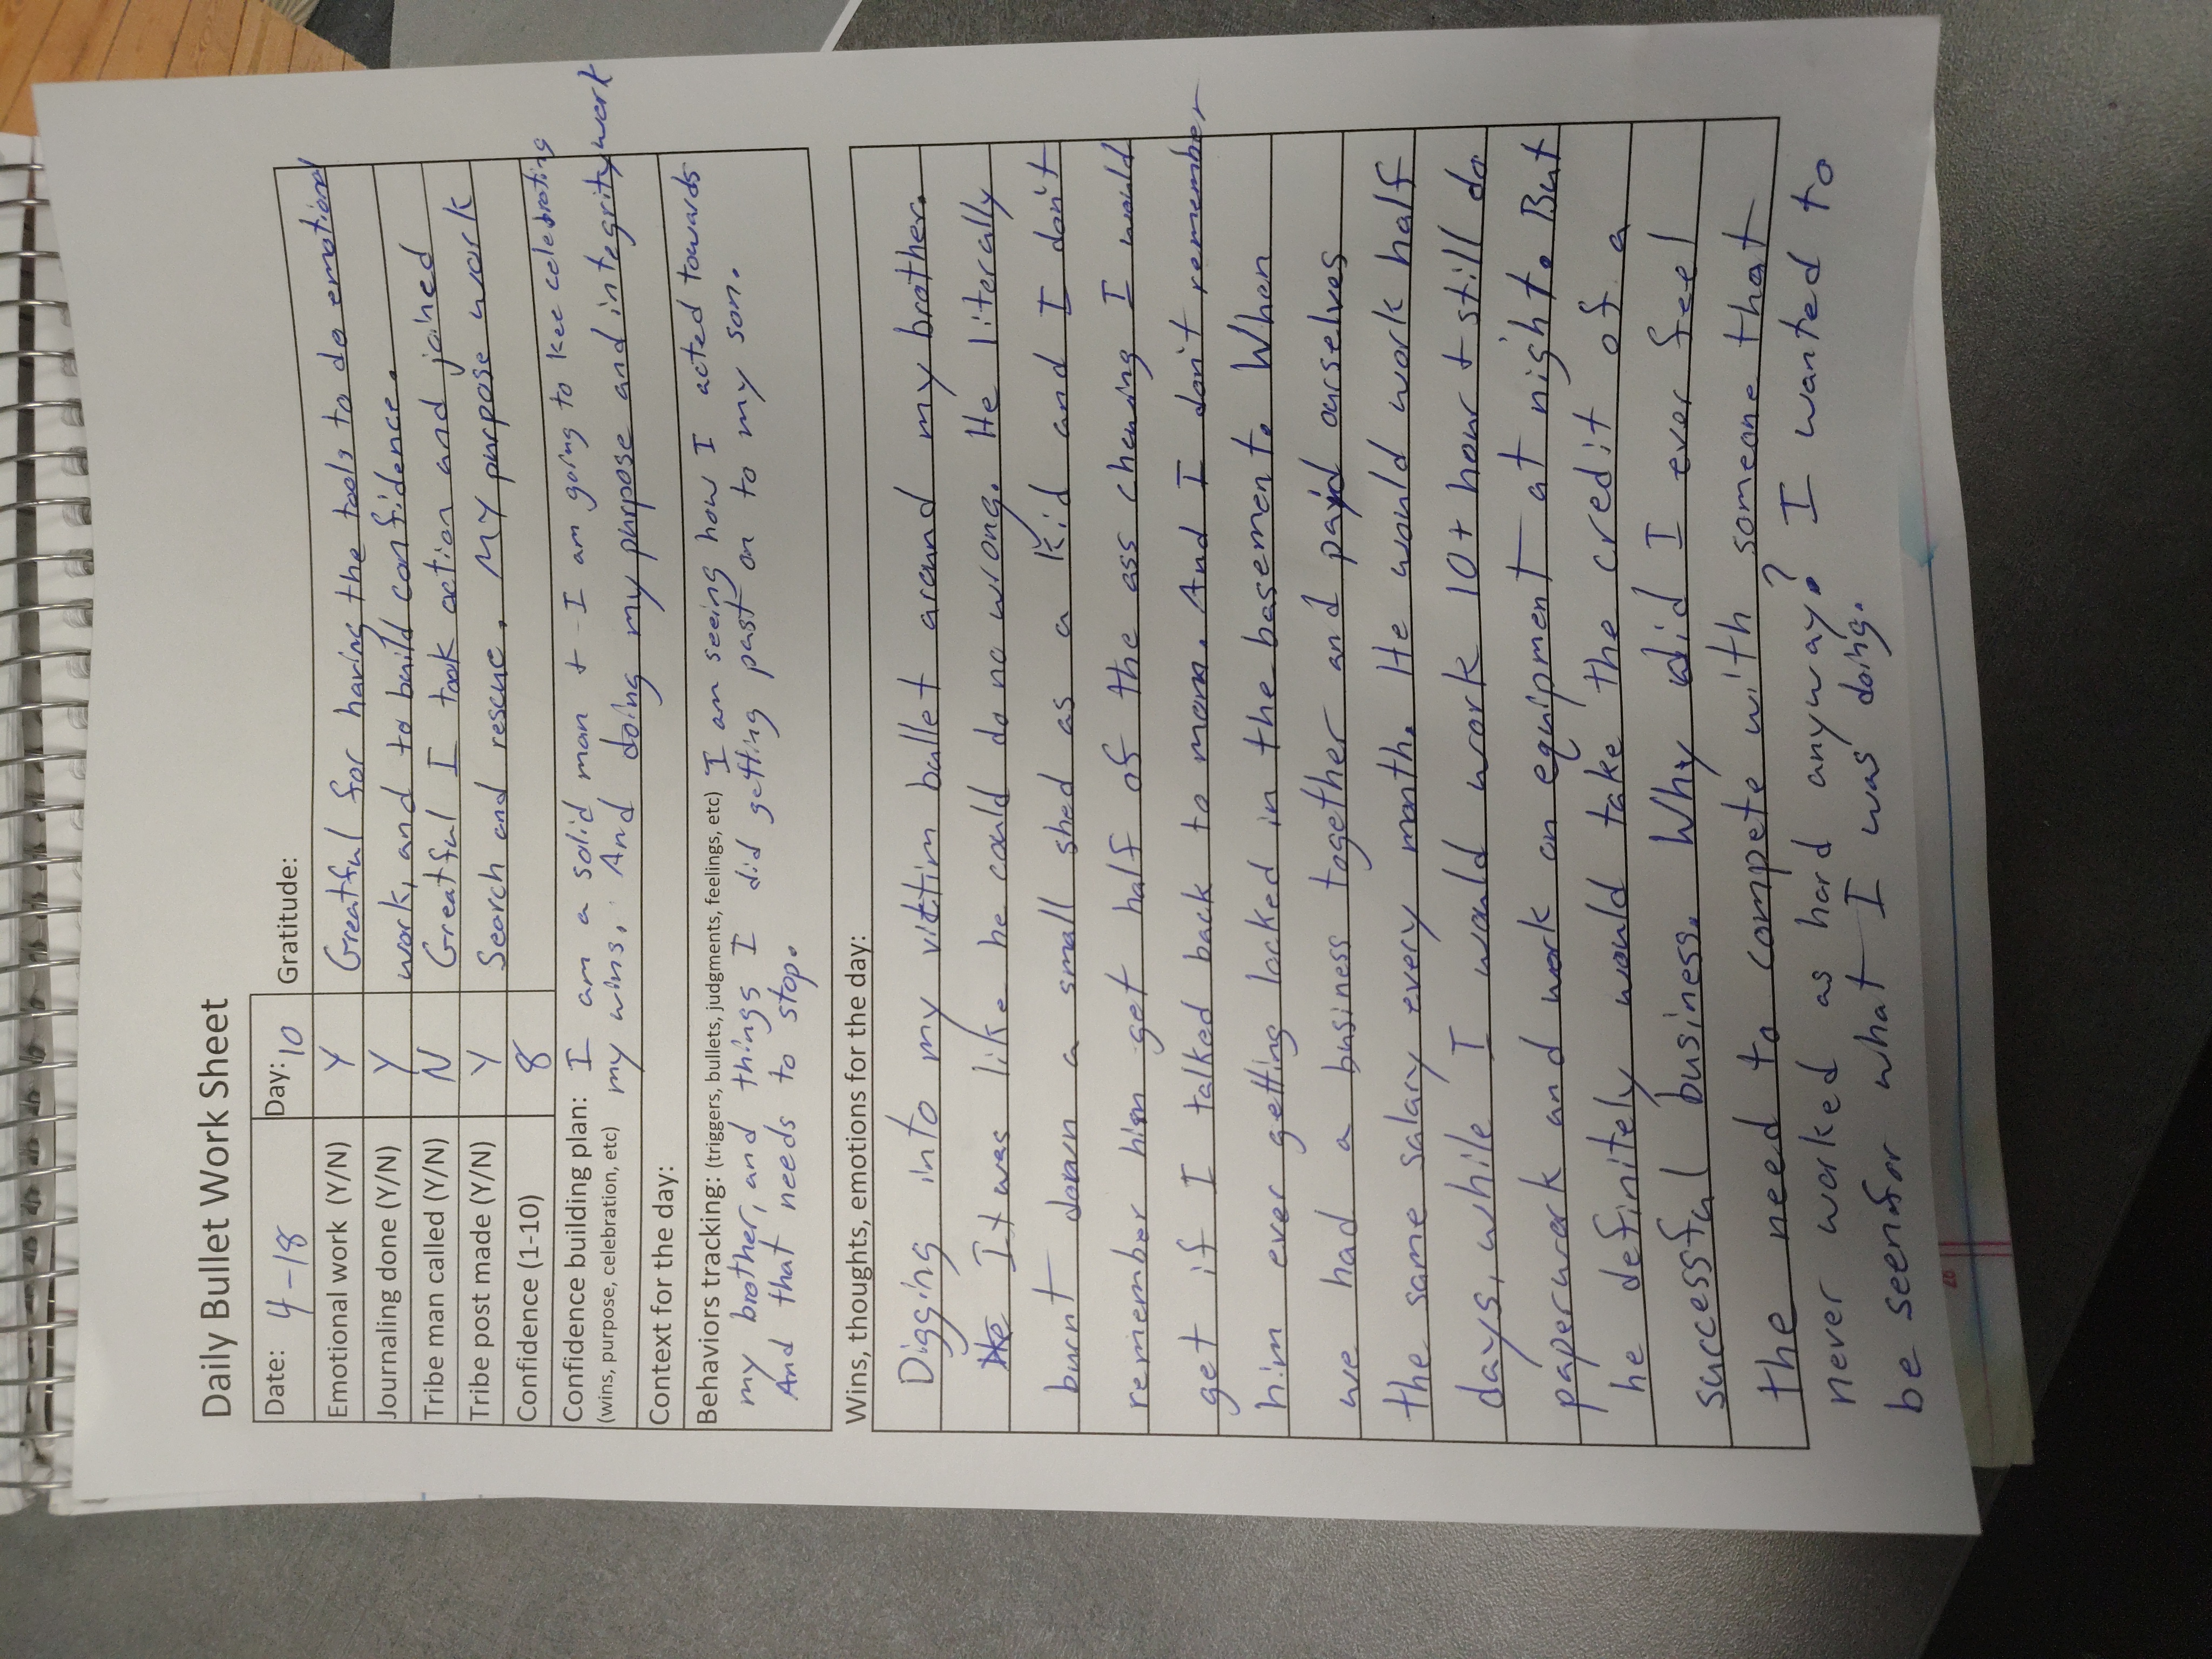 Daily Bullet Work Sheet
Date: 4-18 Day: 10 Gratitude:
Emotional work (Y/N) Y Greatful for having the tools to do emotional
Journaling done (Y/N) Y work, and to build confidence.
Tribe man called (Y/N) N Greatful I took action and joined
Tribe post made (Y/N) Y Search and rescue. My purpose work
Confidence (1-10) 8
Confidence building plan: I am a solid man + I am going to kee celebrating
(wins, purpose, celebration, etc) my wins. And doing my purpose and integrity work
Context for the day:
Behaviors tracking: (triggers, bullets, judgments, feelings, etc) I am seeing how I acted towards
my brother, and things I did getting past on to my son.
And that needs to stop.
Wins, thoughts, emotions for the day:
Digging into my victim bullet around my brother.
He It was like he could do no wrong. He literally
burnt down a small shed as a kid and I don't
remember him get half of the ass chewing I would
get if I talked back to mom. And I don't remember
him ever getting locked in the basement. When
we had a business together and paid ourselves
the same salary every month. He would work half
days, while I would work 10+ hour + still do
paperwork and work on equipment at night. But
he definitely would take the credit of a
successful business. Why did I ever feel
the need to compete with someone that
never worked as hard anyway? I wanted to
be seen for what I was doing.